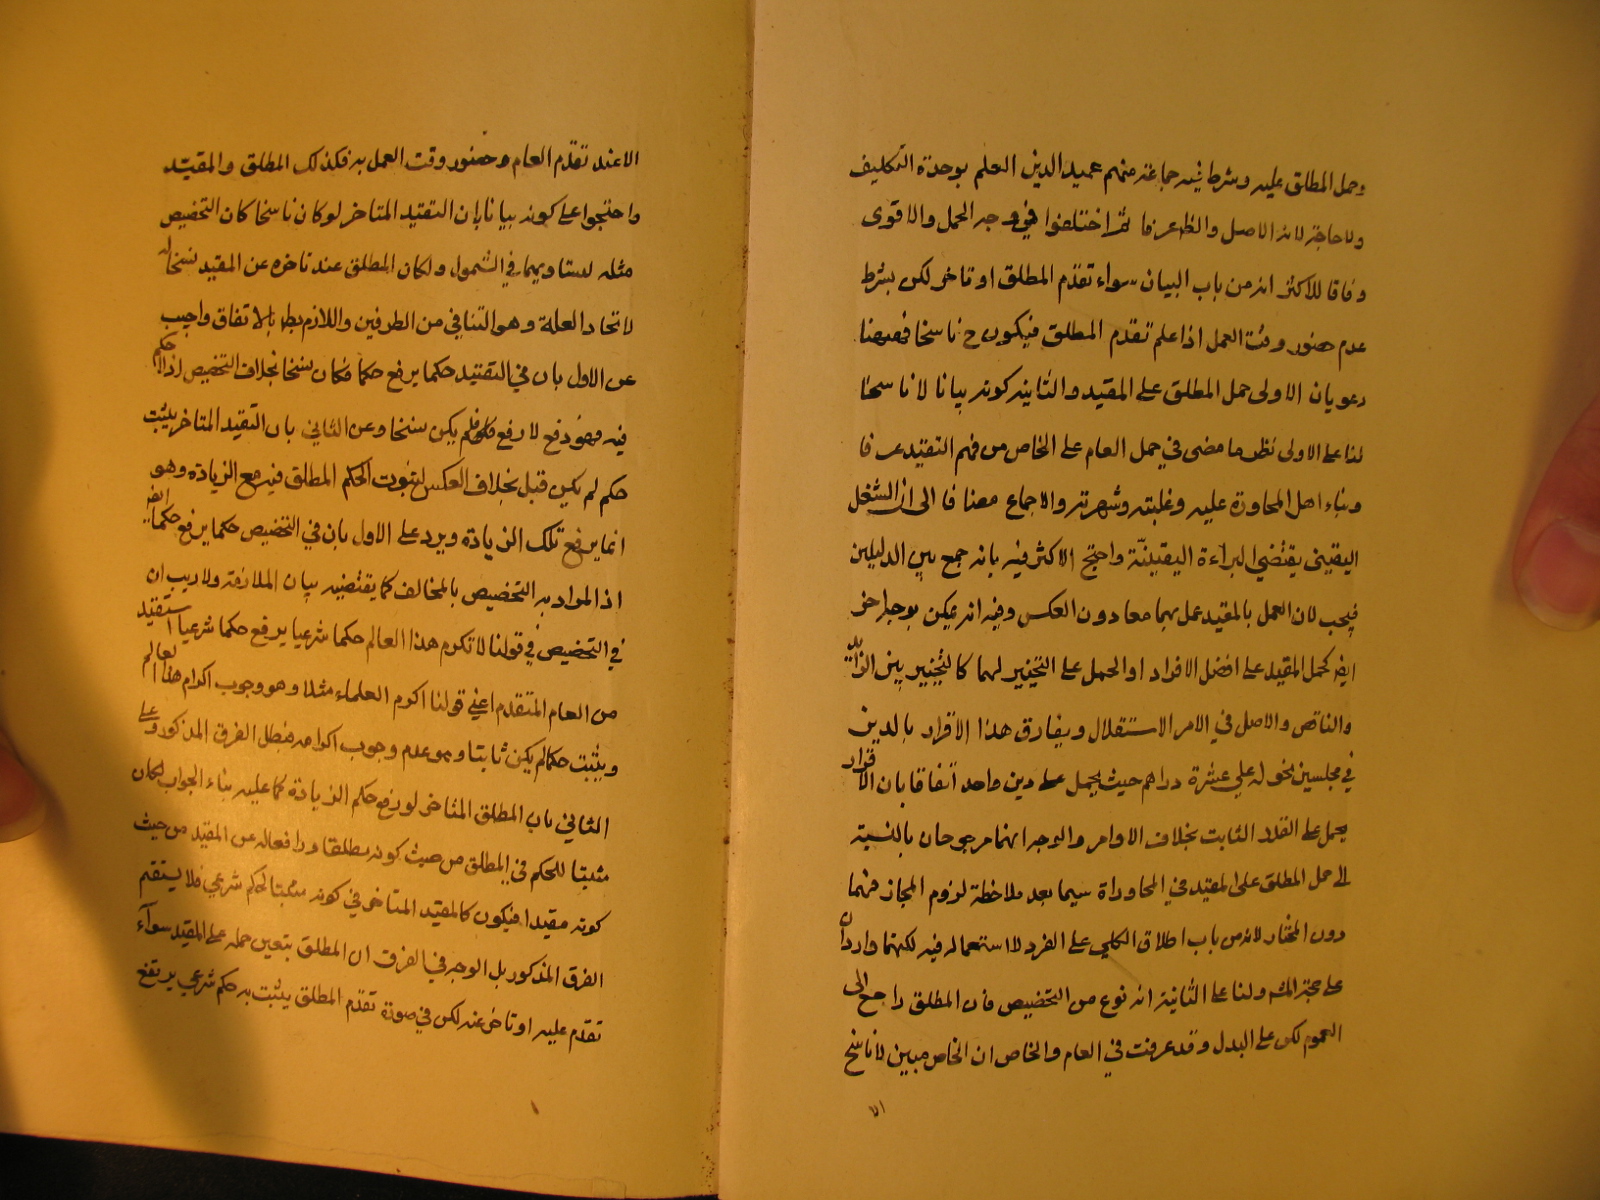 وحمل المطلق عليه وشرط فيه جماعة منهم عميد الدين العلم بوحدة التكليف
ولا حاجة لانه الاصل والظاهر عرفا ثم اختلفوا في وجه الحمل والاقوى
وفاقا للاكثر انه من باب البيان سواء تقدم المطلق او تاخر لكن بشرط
عدم حضور وقت العمل اذا علم تقدم المطلق فيكون ح ناسخا فهيهنا
دعويان الاولى حمل المطلق على المقيد والثانية كونه بيانا لا ناسخا
لنا على الاولى نظير ما مضى في حمل العام على الخاص من فهم التقييد عرفا
وبناء اهل المحاورة عليه وغلبته وشهرته والاجماع مضافا الى ان الشغل
اليقيني يقتضي البراءة اليقينية واحتج الاكثر فيه بانه جمع بين الدليلين
فيجب لان العمل بالمقيد عمل بهما معا دون العكس وفيه انه يمكن بوجه اخر
ايض كحمل المقيد على افضل الافراد او الحمل على التخيير لهما كالتخيير بين الزايد
والناقص والاصل في الامر الاستقلال ويفارق هذا الاقرار بالدين
في مجلسين بخوله علي عشرة دراهم حيث يحمل على دين واحد اتفاقا بان الاقرار
يحمل على القدر الثابت بخلاف الاوامر والوجه انهما مرجوحان بالنسبة
الى حمل المطلق على المقيد في المحاورات سيما بعد ملاحظة لزوم المجاز فيهما
دون المختار لانه من باب اطلاق الكلي على الفرد لا استعماله فيه لكنهما واردان
على حجة المش ولنا على الثانية انه نوع من التخصيص فان المطلق راجع الى
العموم لكن على البدل وقد عرفت في العام والخاص ان الخاص مبين لا ناسخ
الا
الا عند تقدم العام وحضور وقت العمل به فكذلك المطلق والمقيد
واحتجوا على كونه بيانا بان التقييد المتاخر لو كان ناسخا كان التخصيص
مثله لتساويهما في الشمول ولكان المطلق عند تاخره عن المقيد نسخا له
لاتحاد العلة وهو التنافي من الطرفين واللازم بط بالاتفاق واجيب
عن الاول بان في التقييد حكما يرفع حكما فكان نسخا بخلاف التخصيص اذ لا حكم
فيه فهو دفع لا رفع فلم يكن نسخا وعن الثاني بان التقييد المتاخر يثبت
حكم لم يكن قبل بخلاف العكس لثبوت الحكم المطلق فيه مع الزيادة وهو
انما يرفع تلك الزيادة ويرد على الاول بان في التخصيص حكما يرفع حكما ايض
اذ المراد به التخصيص بالمخالف كما يقتضيه بيان الملازمة ولا ريب ان
في التخصيص في قولنا لا تكرم هذا العالم حكما شرعيا يرفع حكما شرعيا استفيد
من العام المتقدم اعني قولنا اكرم العلماء مثلا وهو وجوب اكرام هذا العالم
ويثبت حكما لم يكن ثابتا وهو عدم وجوب اكرامه فبطل الفرق المذكور وعلى
الثاني بان المطلق المتاخر لو رفع حكم الزيادة كما عليه بناء الجواب لكان
مثبتا للحكم في المطلق من حيث كونه مطلقا ورافعا له عن المقيد من حيث
كونه مقيدا فيكون كالمقيد المتاخر في كونه مثبتا لحكم شرعي فلا يستقيم
الفرق المذكور بل الوجه في الفرق ان المطلق يتعين حمله على المقيد سواء
تقدم عليه او تاخر عنه لكن في صورة تقدم المطلق يثبت به حكم شرعي يرتفع